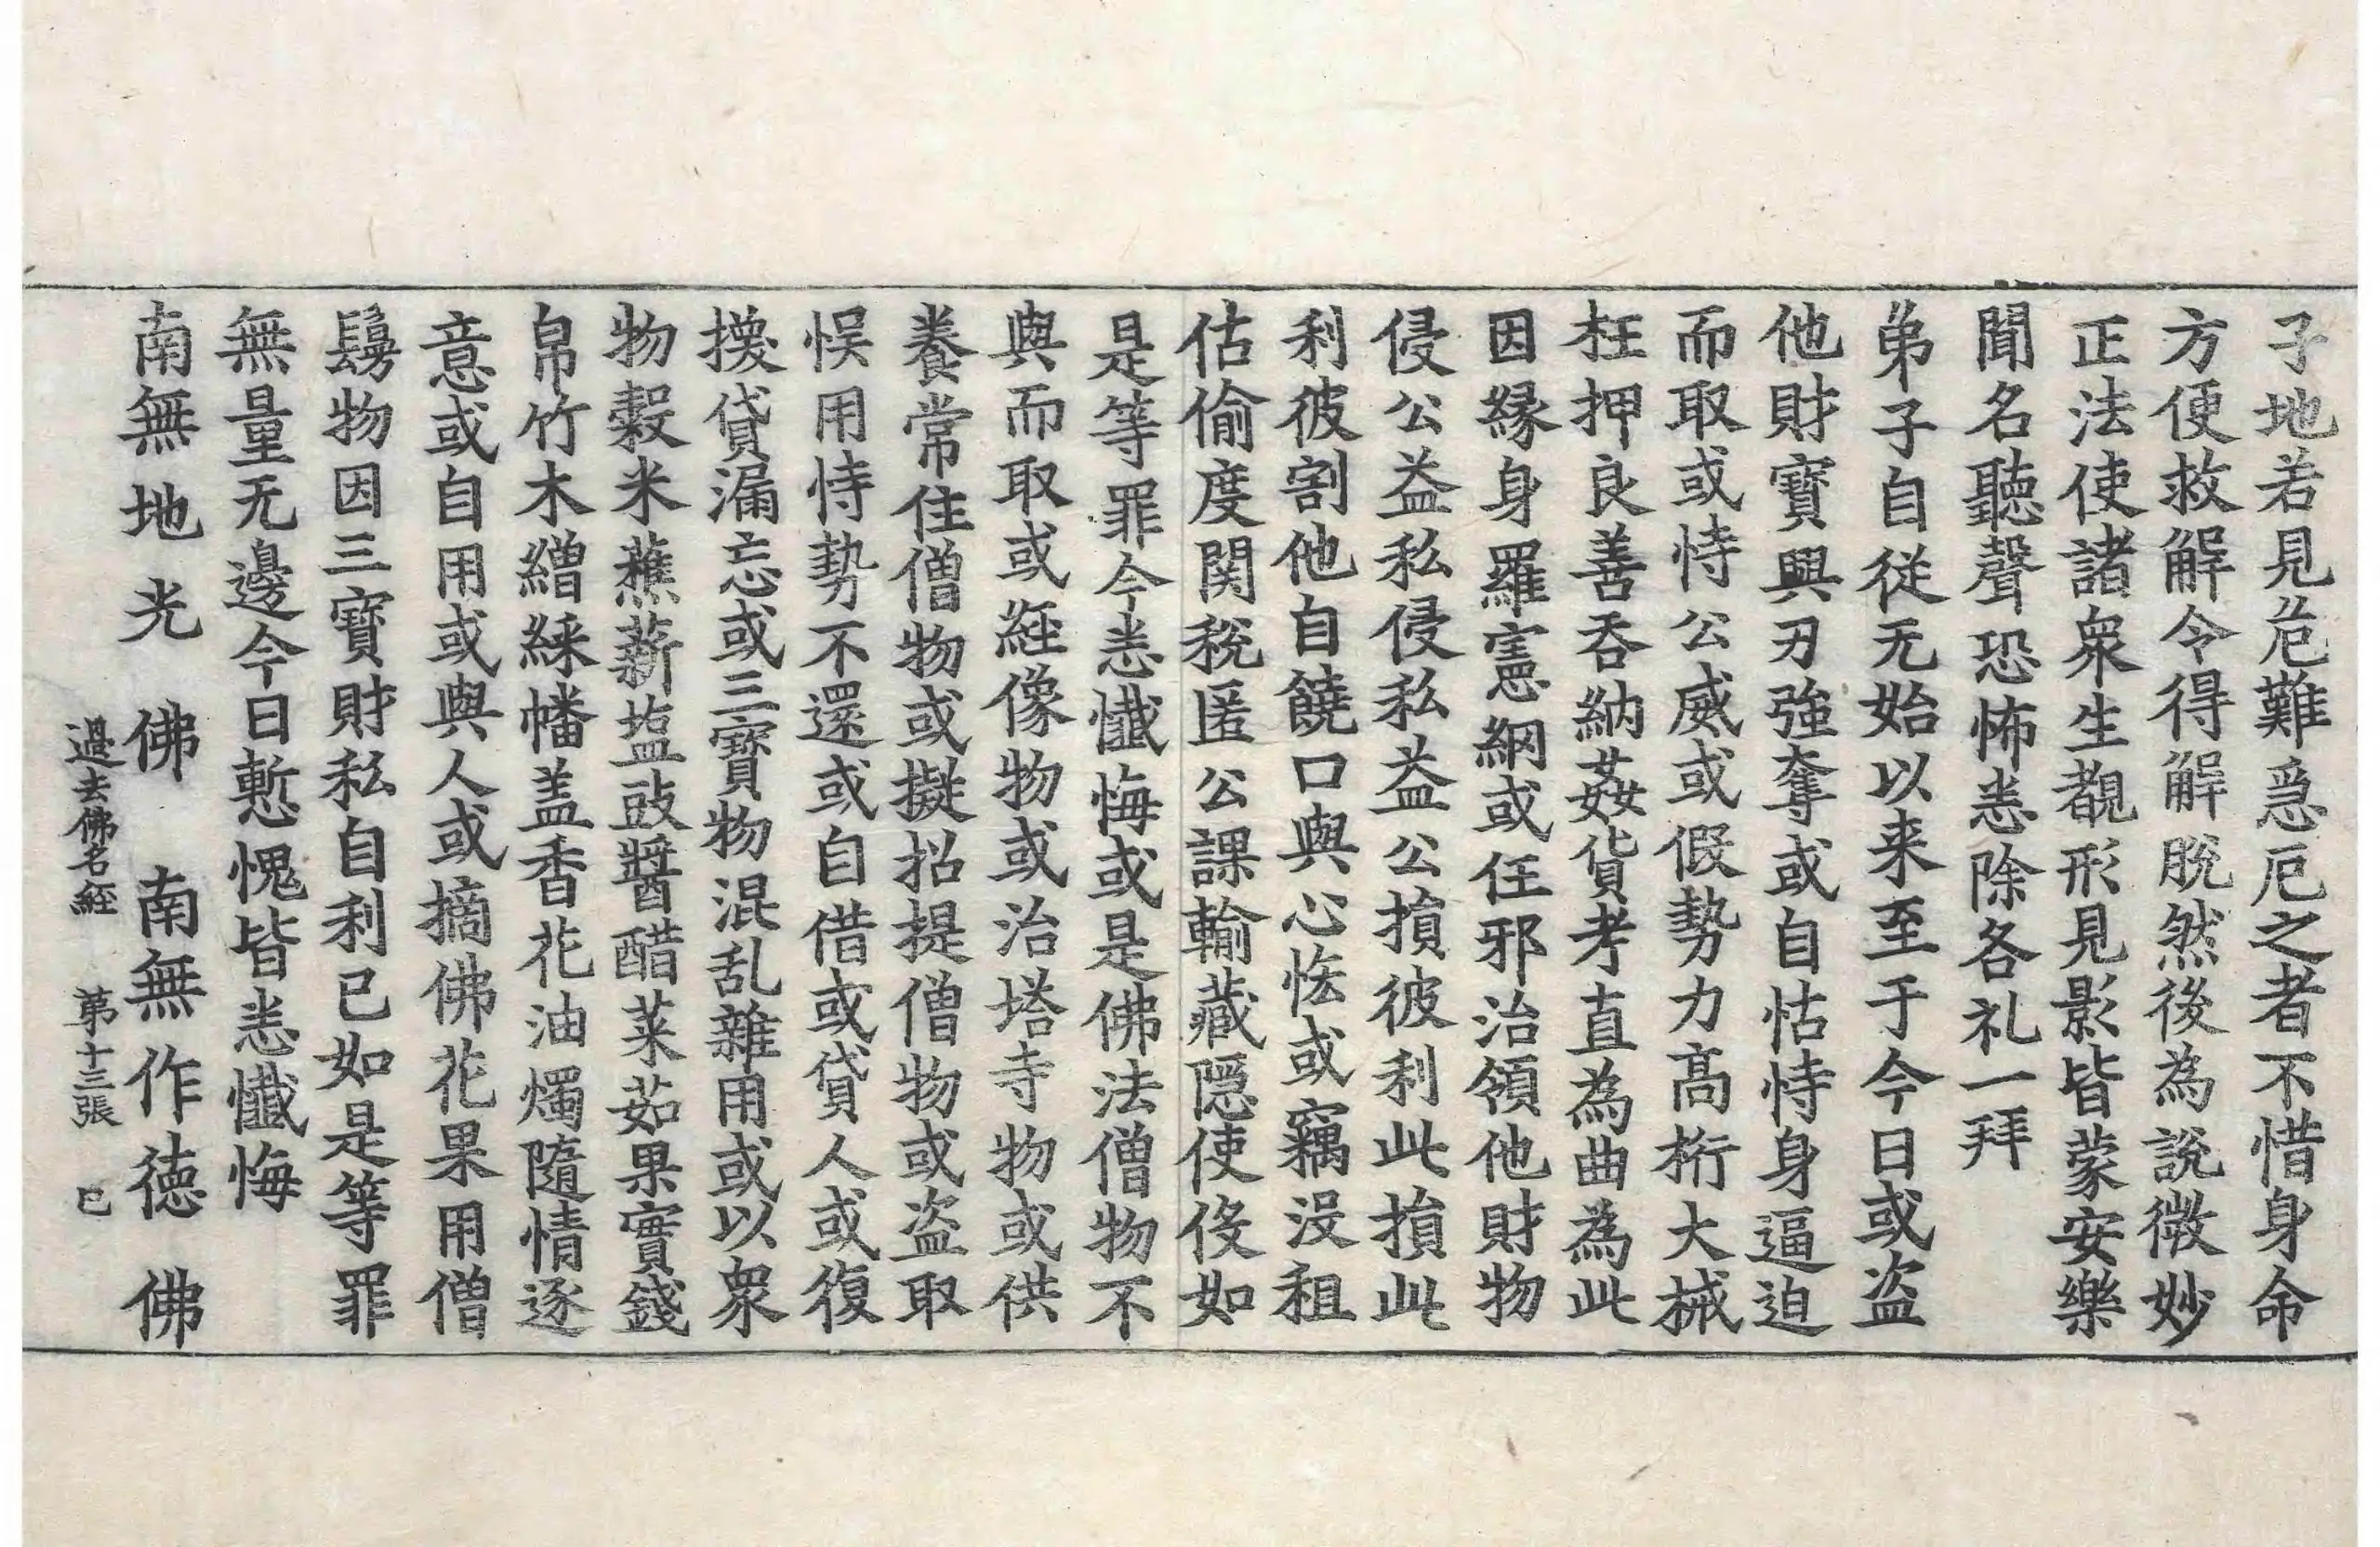 子地若見危難急厄之者不惜身命
方便救解令得解脫然後為說微妙
正法使諸衆生覩形見影皆蒙安樂
聞名聽聲恐怖悉除各礼一拜
弟子自從无始以来至于今日或盗
他財寶興刃強奪或自怙恃身逼迫
而取或恃公威或假勢力高桁大械
枉押良善吞納姦貨考直為曲為此
因緣身羅憲網或任邪治領他財物
侵公益私侵私益公損彼利此損此
利彼割他自饒口與心恡或竊沒租
估偷度関稅匿公課輸藏隱使役如
是等罪今悉懺悔或是佛法僧物不
與而取或經像物或治塔寺物或供
養常住僧物或擬招提僧物或盗取
悮用恃勢不還或自借或貸人或復
換貸漏忘或三寶物混乱雜用或以衆
物穀米蕉薪塩豉醬醋菜茹果實錢
帛竹木繒綵幡盖香花油燭隨情逐
意或自用或與人或摘佛花果用僧
鬘物因三寶財私自利已如是等罪
無量无邊今日慙愧皆悉懺悔
南無地光佛 南無作德佛
過去佛名經 第十三張 已